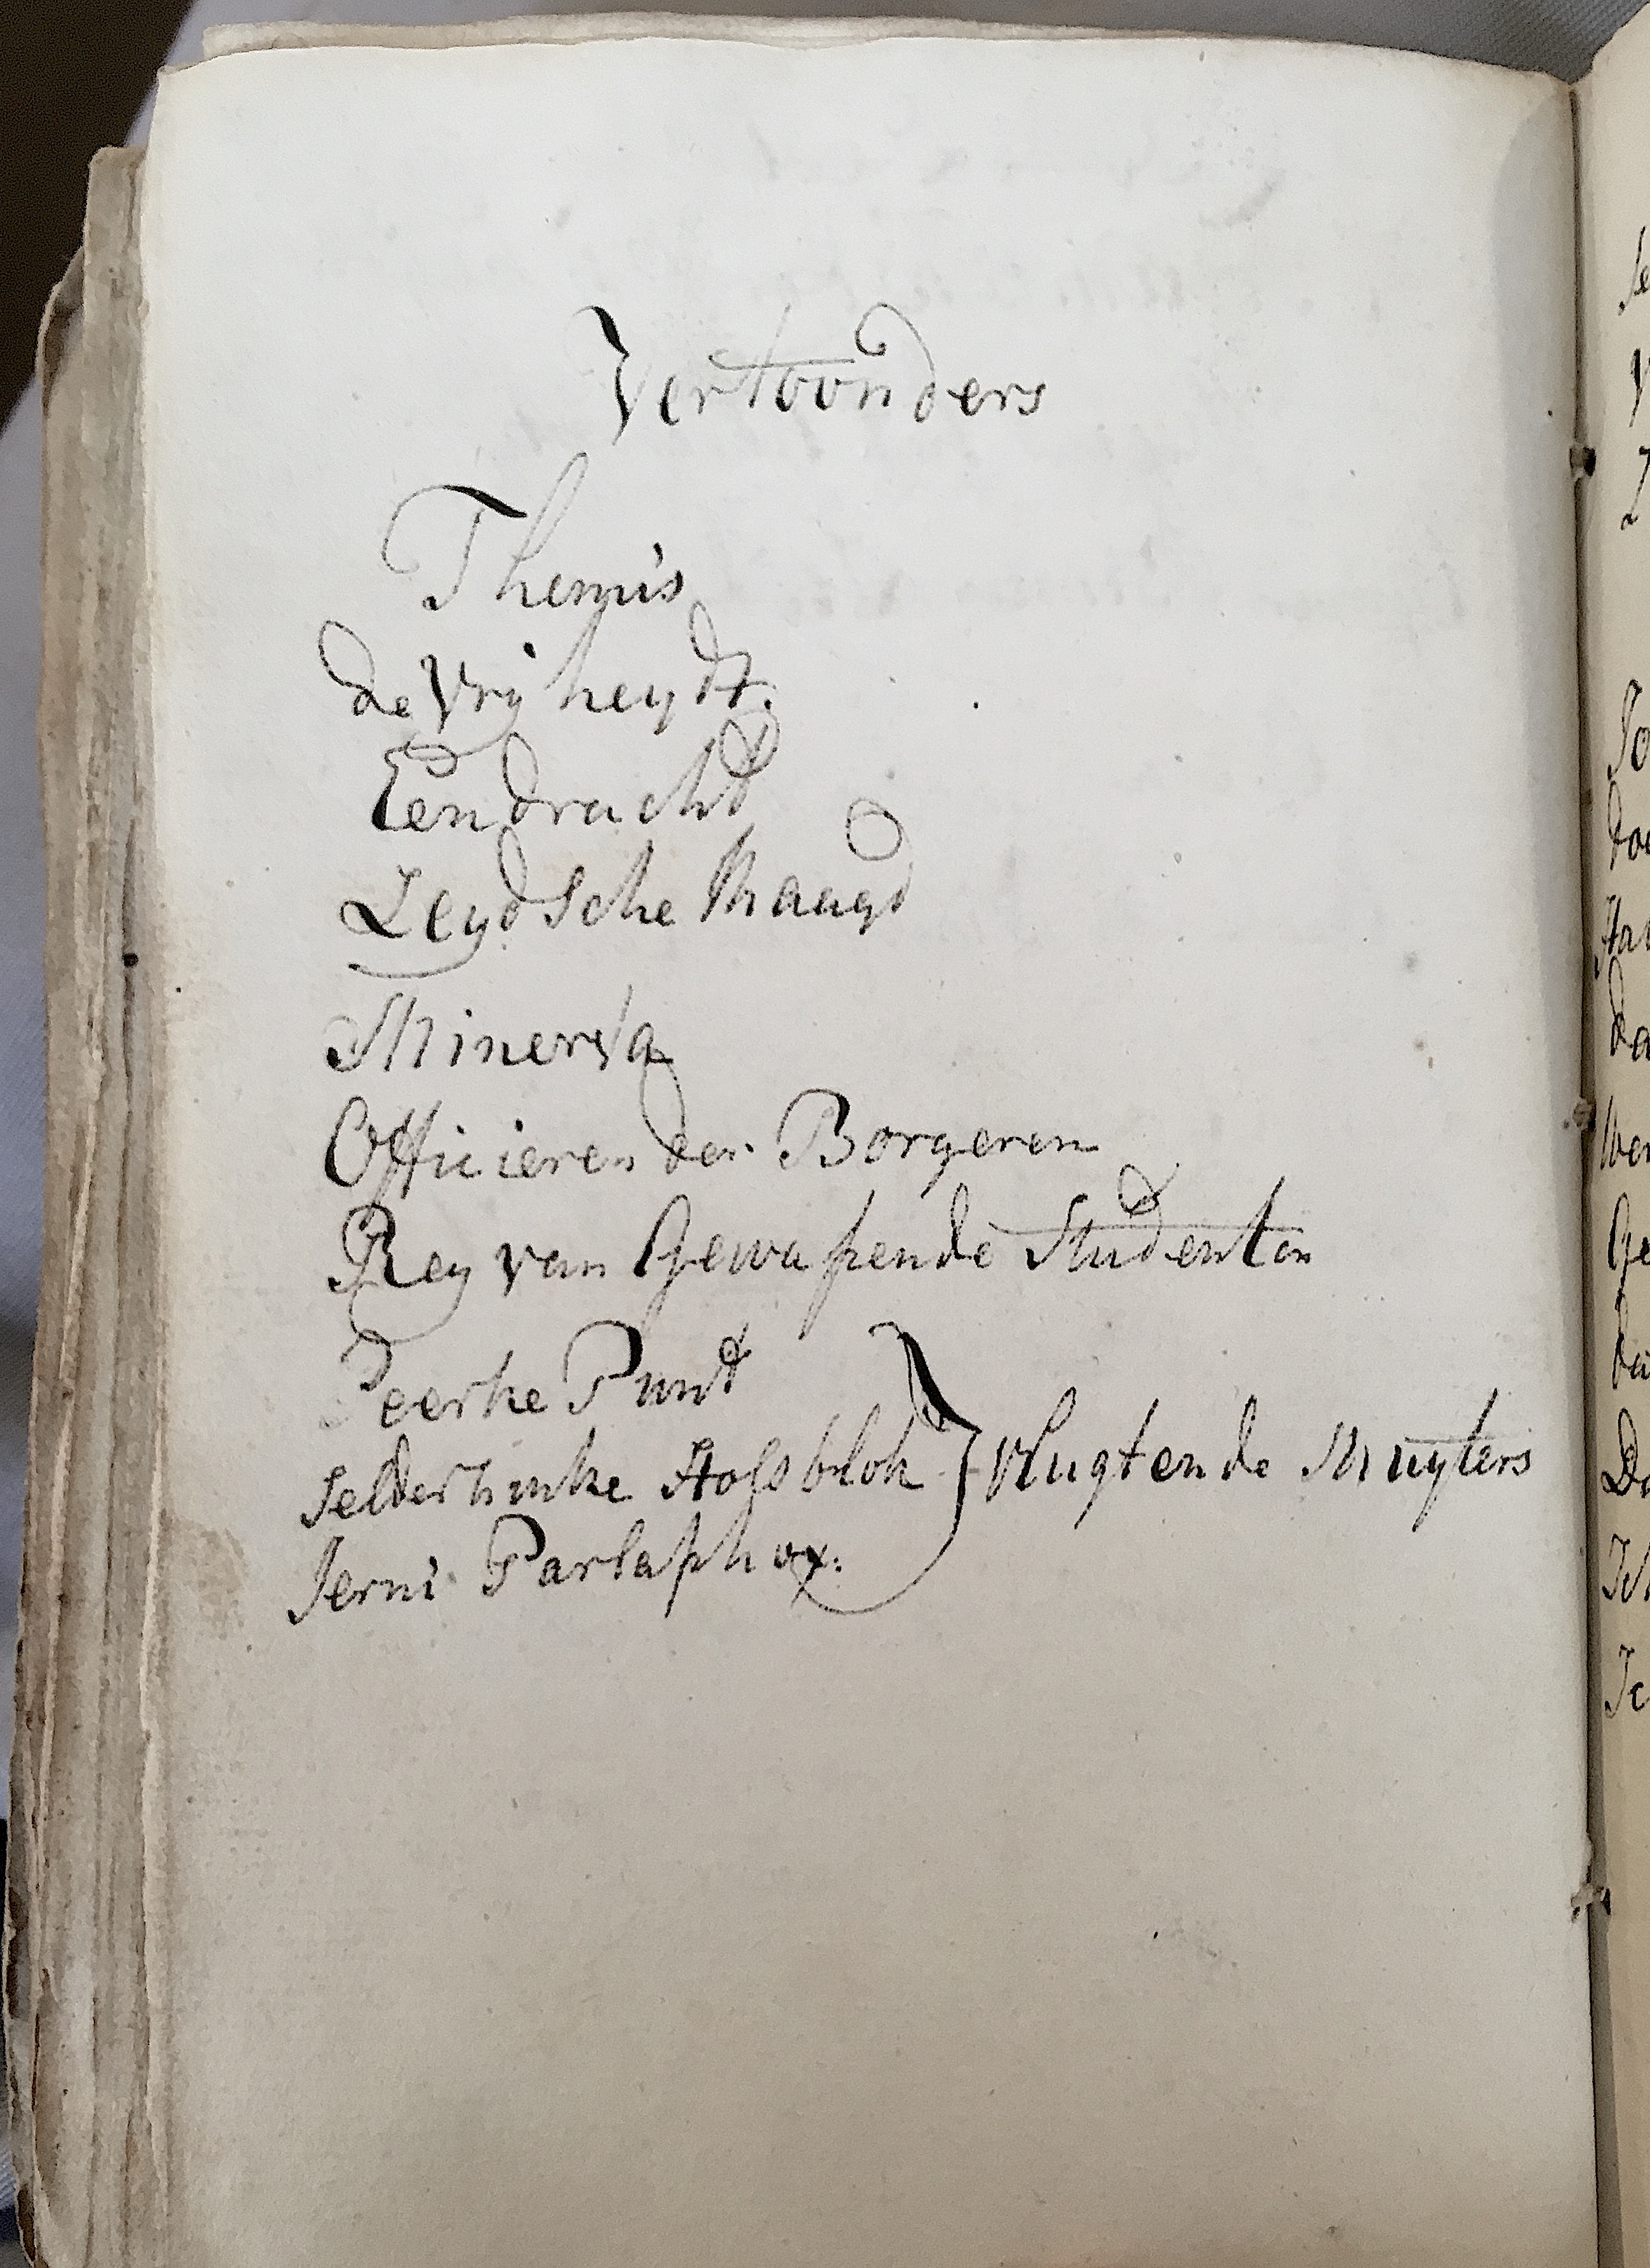 Vertoonders
Themis
de Vrijheydt.
Eendracht
Leydsche Maagd
Minerva
Officieren der Borgeren
Rey van Gewapende Studenten
Peerke Punt
Holsblok } Vlugtende Muyters
Jerni Parlaphox.